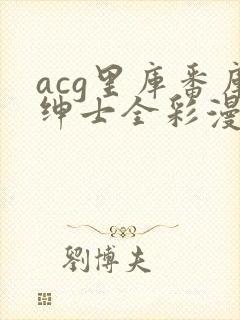 acg里库番库
绅士全彩漫
劉博夫